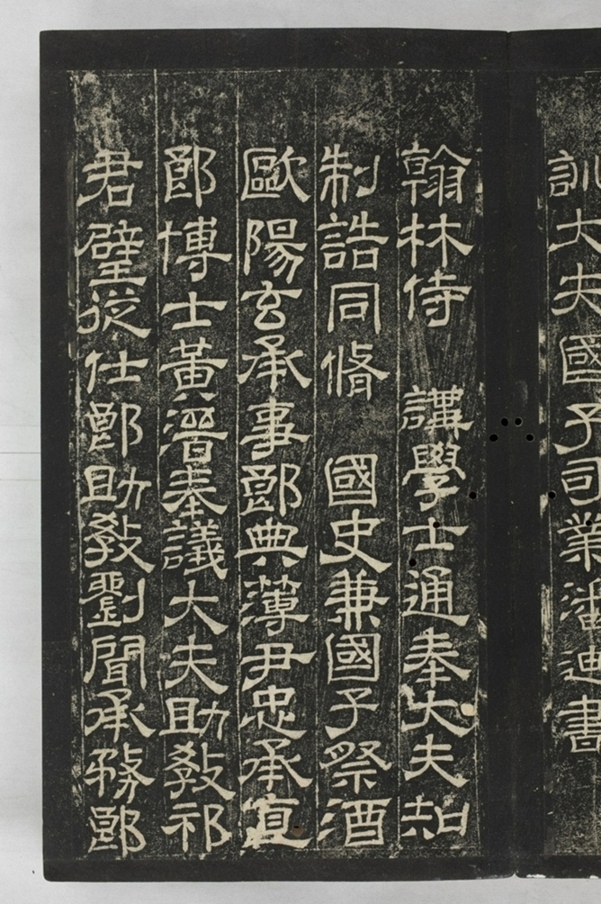 訓大夫國子司業潘迪書
翰林侍 講學士通奉大夫知
制誥同脩 國史兼國子祭酒
歐陽玄承事郎典簿尹忠承直
郎博士黃溍奉議大夫助教祁
君璧從仕郎助教劉聞承務郎